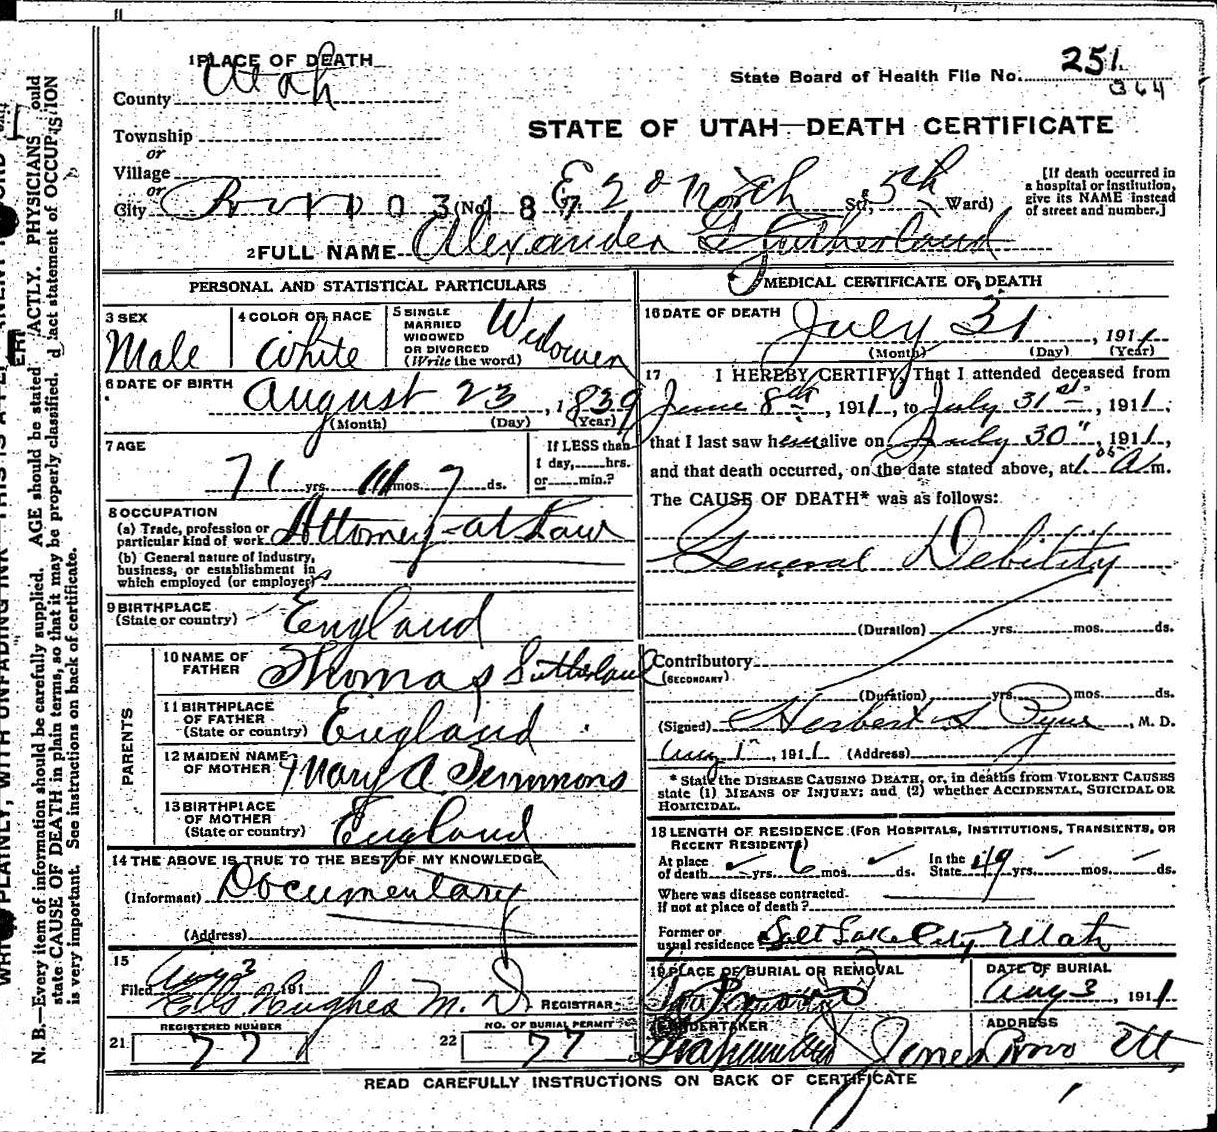 1 PLACE OF DEATH
County Utah
State Board of Health File No. 251
364
Township
or
Village
or
City Provo
STATE OF UTAH—DEATH CERTIFICATE
(No. 187 E 2d North St; 5th Ward)
[If death occurred in a hospital or institution, give its NAME instead of street and number.]
2 FULL NAME Alexander G Sutherland
PERSONAL AND STATISTICAL PARTICULARS
3 SEX
Male
4 COLOR OR RACE
White
5 SINGLE
MARRIED
WIDOWED
OR DIVORCED
(Write the word)
Widower
6 DATE OF BIRTH
August 23, 1839
(Month) (Day) (Year)
7 AGE
71 yrs. 11 mos. 7 ds.
If LESS than
1 day,......hrs.
or......min.?
8 OCCUPATION
(a) Trade, profession or
particular kind of work Attorney-at Law
(b) General nature of industry,
business, or establishment in
which employed (or employer)
9 BIRTHPLACE
(State or country) England
PARENTS
10 NAME OF
FATHER Thomas Sutherland
11 BIRTHPLACE
OF FATHER
(State or country) England
12 MAIDEN NAME
OF MOTHER Mary A. Simmons
13 BIRTHPLACE
OF MOTHER
(State or country) England
14 THE ABOVE IS TRUE TO THE BEST OF MY KNOWLEDGE
(Informant) Documentary
(Address)
15
Filed Aug 3 191
Hughes M. D REGISTRAR
REGISTERED NUMBER
21 77
NO. OF BURIAL PERMIT
22 77
MEDICAL CERTIFICATE OF DEATH
16 DATE OF DEATH
July 31, 1911
(Month) (Day) (Year)
17 I HEREBY CERTIFY, That I attended deceased from
June 8th, 1911, to July 31st, 1911,
that I last saw him alive on July 30", 1911,
and that death occurred, on the date stated above, at 1 05 A m.
The CAUSE OF DEATH* was as follows:
General Debility
(Duration) yrs. mos. ds.
Contributory
(SECONDARY)
(Duration) yrs. mos. ds.
(Signed) Herbert S Pyne, M. D.
Aug 1st, 1911 (Address)
* State the DISEASE CAUSING DEATH, or, in deaths from VIOLENT CAUSES
state (1) MEANS OF INJURY; and (2) whether ACCIDENTAL, SUICIDAL OR
HOMICIDAL.
18 LENGTH OF RESIDENCE (FOR HOSPITALS, INSTITUTIONS, TRANSIENTS, OR
RECENT RESIDENTS)
At place
of death yrs. 6 mos. ds. In the
State 49 yrs. mos. ds.
Where was disease contracted.
If not at place of death?
Former or
usual residence Salt Lake City Utah
19 PLACE OF BURIAL OR REMOVAL
Provo
DATE OF BURIAL
Aug 3, 1911
UNDERTAKER
Jones
ADDRESS
Provo Ut
READ CAREFULLY INSTRUCTIONS ON BACK OF CERTIFICATE
N. B.—Every item of information should be carefully supplied. AGE should be stated
state CAUSE OF DEATH in plain terms, so that it may be properly classified.
is very important. See instructions on back of certificate.
PHYSICIANS
statement of OCCUPATION
PLAINLY, WITH UNFADING INK
THIS IS A